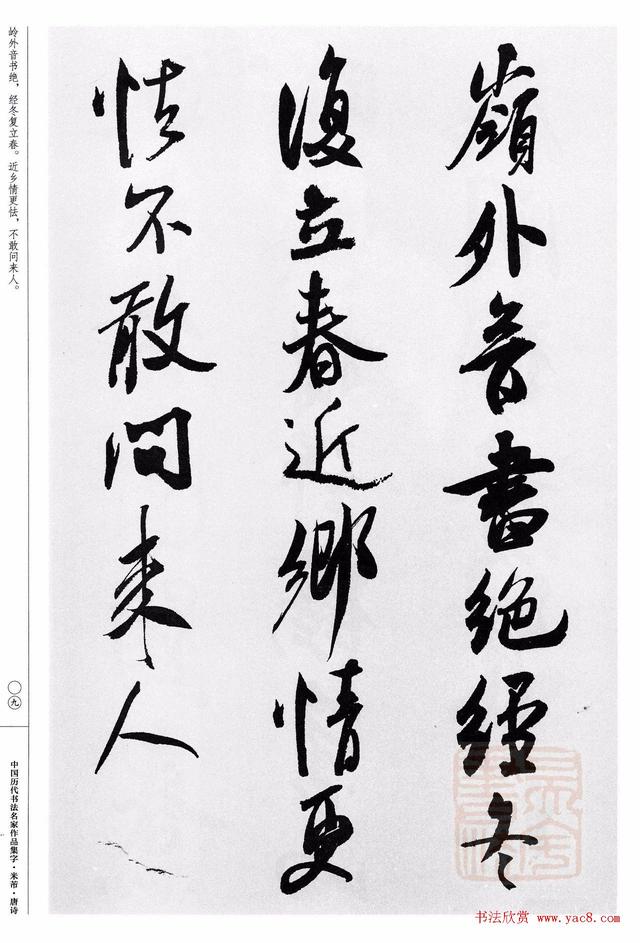 嶺外音書絶經冬
復立春近鄉情更
怯不敢問來人
岭外音书绝，经冬复立春。近乡情更怯，不敢问来人。
〇九
中国历代书法名家作品集字·米芾·唐诗
书法欣赏 www.yac8.com